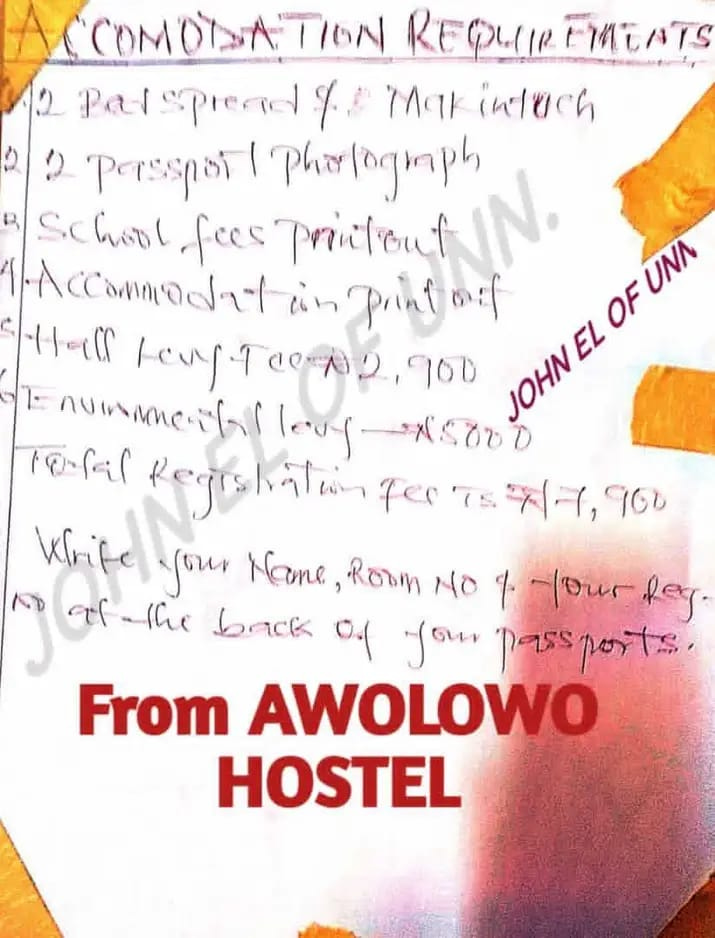 ACCOMODATION REQUIREMENTS
2 Bedspread & Makintoch
2 2 Passport photograph
3 School fees printout
4 Accommodation printout
5 Hall Levy Fee ₦2,900
6 Environmental levy — ₦5000
Total Registration fee is ₦7,900
Write your Name, Room NO & your Reg-
NO at the back of your passports.
JOHN EL OF UNN.
JOHN EL OF UNN
From AWOLOWO
HOSTEL